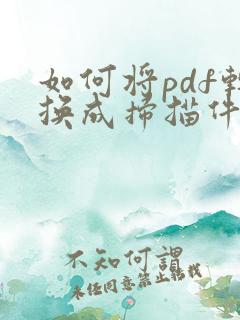 如何将pdf轉
换成掃描件
不知何謂
未经同意禁止转载